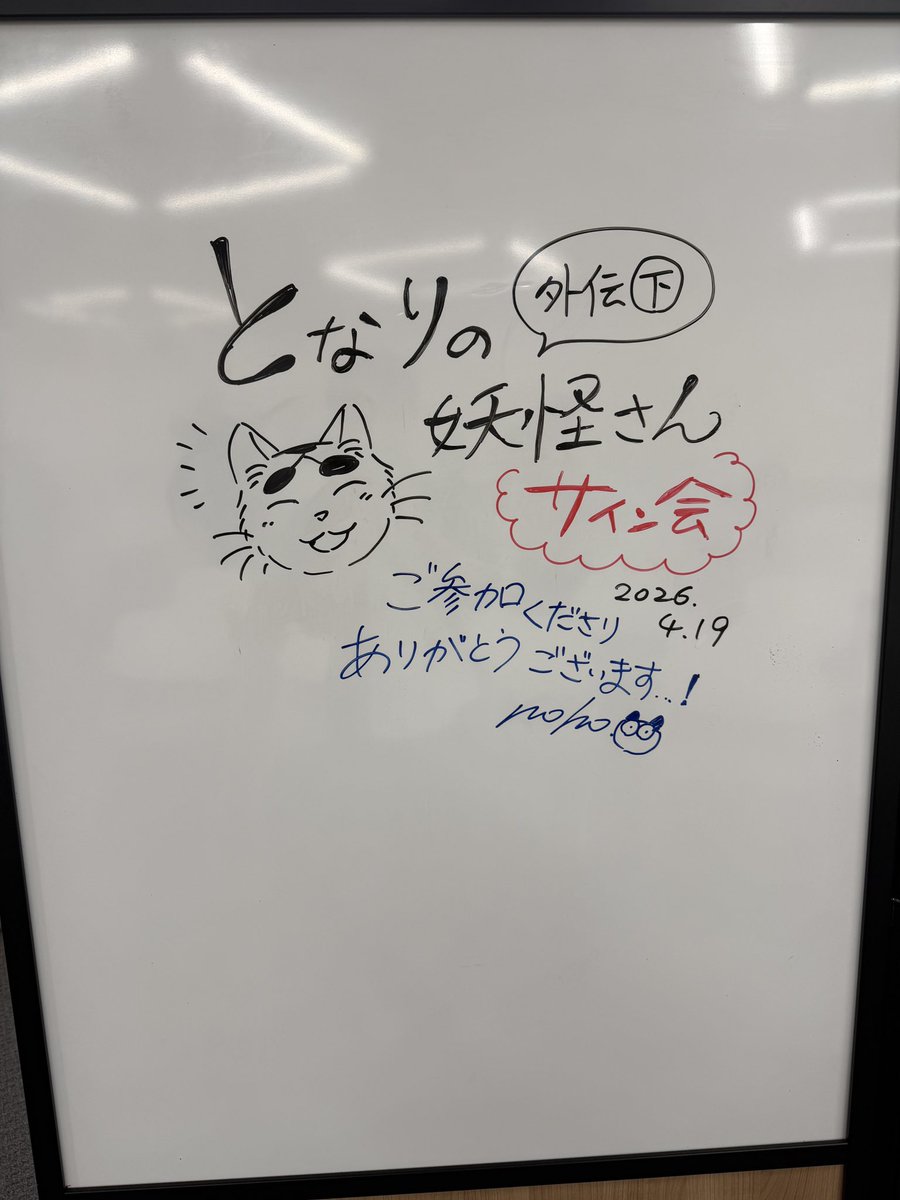 となりの
外伝下
妖怪さん
サイン会
2026.
4.19
ご参加くださり
ありがとうございます...!
noho.